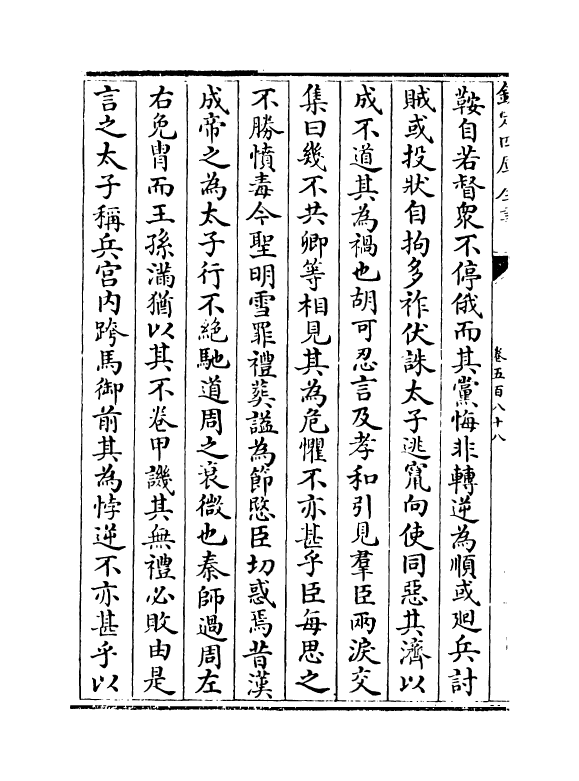 欽定四庫全書
卷五百八十八
鞍自若督衆不停俄而其黨悔非轉逆為順或廻兵討
賊或投狀自拘多祚伏誅太子逃竄向使同惡其濟以
成不道其為禍也胡可忍言及孝和引見羣臣兩淚交
集曰幾不共卿等相見其為危懼不亦甚乎臣每思之
不勝憤毒今聖明雪罪禮葬謚為節愍臣切惑焉昔漢
成帝之為太子行不絶馳道周之衰微也秦師過周左
右免胄而王孫滿猶以其不卷甲譏其無禮必敗由是
言之太子稱兵宫内跨馬御前其為悖逆不亦甚乎以